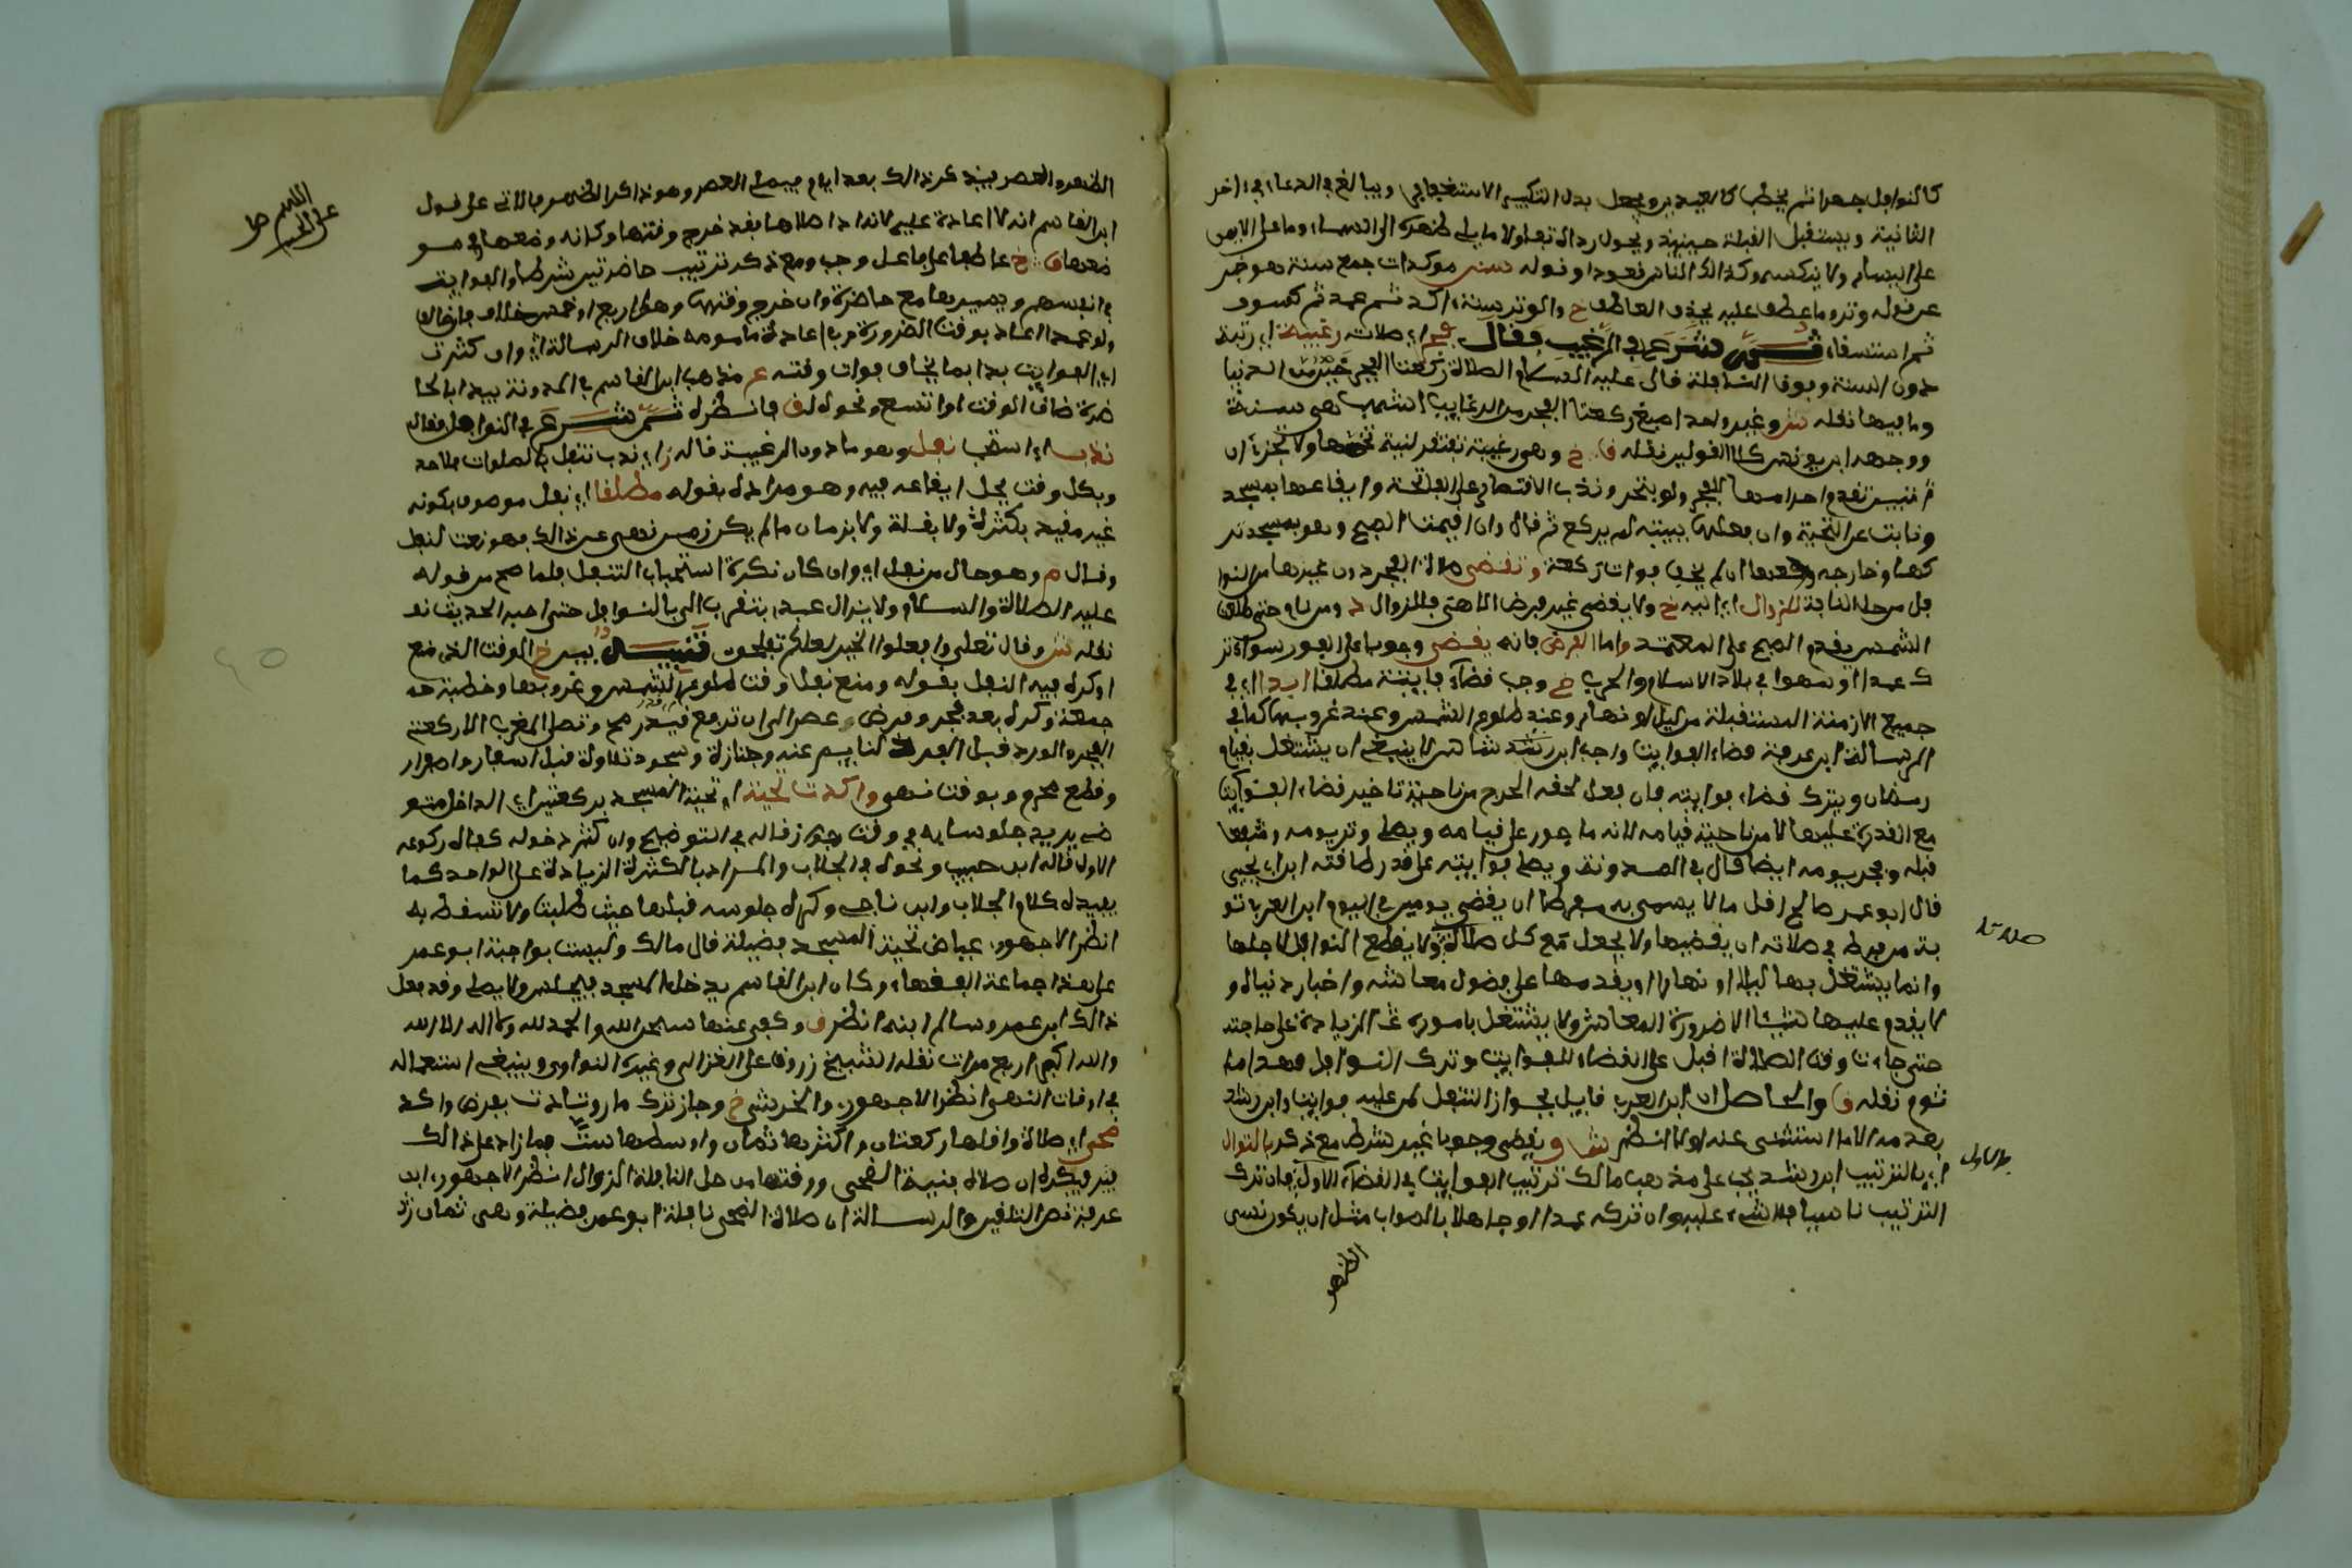 كالنوافل جهرا ثم يخطب كالعيدين ويجعل بدل التكبير الاستغفار ويبالغ في الدعاء في اخر
الثانية ويستقبل القبلة حينئذ ويحول رداءه تفاولا ما يلي ظهره الى السماء وما على الايمن
على اليسار ولا ينكسه وكذا الناس قعودا وقوله سنن موكدات جمع سنة وهو خبر
عن قوله وتر وما عطف عليه بحذف العاطف خ والوتر سنة اكد ثم عيد ثم كسوف
ثم استسقاء ثم شرع في الرغيب فقال فجر اي صلاته رغيبة اي رتبة
دون السنة وفوق النافلة قال عليه السلام والصلاة ركعتا الفجر خير من الدنيا
وما فيها نقله وغير واحد اصبغ ركعتا الفجر من الرغايب اشهب هي سنة
ووجهه ابن يونس كلا القولين نقله ق خ وهي رغيبة تفتقر لنية تخصها ولا تجزئ ان
تبين تقدم احرامها للفجر ولو بتحر وندب الاقتصار على الفاتحة وايقاعها بمسجد
ونابت عن التحية وان فعلها ببيته لم يركع ثم قال وان اقيمت الصبح وهو بمسجد تر
كها وخارجه ركعها ان لم يخف فوات ركعة وتقضى صلاة الفجر دون غيرها من النوا
فل من حل النافلة للزوال اي اليه خ ولا يقضى غير فرض الا هي فللزوال ومن نام حتى طلعت
الشمس يقدم الصبح على المعتمد واما الفرض فانه يقضى وجوبا على الفور سواء تر
ك عمدا او سهوا في بلاد الاسلام والحرب خ وجب قضاء فايتة مطلقا ابدا اي في
جميع الازمنة المستقبلة من ليل او نهار وعند طلوع الشمس وعند غروبها كما في
الرسالة ابن عرفة قضاء الفوايت واجب ابن رشد لا ينبغي ان يشتغل بقيام
رمضان ويترك قضاء فوايته فان فعل لحقه الحرج من ناحية تاخير قضاء الفوايت
مع القدرة عليها لا من ناحية قيامه لانه ماجور على قيامه ويصلي وتر يومه وشفعها
قبله وفجر يومه ايضا قال في المدونة ويصلي فوايته على قدر طاقته ابو يحيى
قال ابو عمر صالح اقل ما لا يسمى به مفرطا ان يقضي يومين في اليوم ابن العربي تو
بة من فرط في صلاته ان يقضيها ولا يجعل مع كل صلاة ولا يقطع النوافل لاجلها
وانما يشتغل بها ليلا او نهارا ويقدمها على فضول معاشه واخبار دنياه و
لا يقدم عليها شيئا الا ضرورة المعاش ولا يشتغل باموره الزيادة على حاجته
حتى جاءت وقت الصلاة اقبل على القضاء للفوايت وترك النوافل فهذا ما
ثوم نقله ق والحاصل ان ابن العربي قايل بجواز التنفل لمن عليه فوايت وابن رشد
بعدمه الا ما استثنى عنه اولا انظر ويقضى وجوبا غير شرط مع ذكر بالتوال
اي بالترتيب ابن رشد يجب على مذهب مالك ترتيب الفوايت في القضاء الاول فان ترك
الترتيب ناسيا فلا شيء عليه وان تركه عمدا او جاهلا بالصواب مثل ان يكون نسي
الظهر
الظهر والعصر فيتذكر ذالك بعد ايام فيصلي العصر وهو ذاكر الظهر فالاتي على قول
ابن القاسم انه لا اعادة عليه لانه اذا صلاها فقد خرج وقتها وكانه وضعها في مو
ضعها ق خ عاطفا على فاعل وجب ومع ذكر ترتيب حاضرتين شرطا والفوايت
في انفسهم ويسيرها مع حاضرة وان خرج وقتها وهل اربع او خمس خلاف فان خالف
ولو عمدا اعاد بوقت الضرورة وفي اعادة مامومه خلاف الرسالة اي وان كثرت
اي الفوايت بدا بما يخاف فوات وقته مذهب ابن القاسم في المدونة يبدا بالحا
ضرة ضاق الوقت او اتسع ونحوه لق فانظره ثم شرع في النوافل فقال
ندب اي استحب نفل وهو ما دون الرغيبة قاله ز اي ندب تنفل بالصلوات
وبكل وقت يحل ايقاعه فيه وهو مراده بقوله مطلقا اي نفل موصوف بكونه
غير مقيد بكثرة ولا بقلة ولا بزمان ما لم يكن زمن نهي عن ذالك فهو نعت لنفل
وقال م وهو حال من نفل اي وان كان نكرة استحباب التنفل فلما صح من قوله
عليه الصلاة والسلام ولا يزال عبدي يتقرب الي بالنوافل حتى احبه الحديث
نقله وقال تعلى وافعلوا الخير لعلكم تفلحون تنبيه بين خ الوقت الذي منع
او كره فيه النفل بقوله ومنع نفل وقت طلوع الشمس وغروبها وخطبة
جمعة وكره بعد فجر وفرض عصر الى ان ترتفع قيد رمح وتصلى المغرب الا ركعتي
الفجر والورد قبل الفرض لنايم عنه وجنازة وسجود تلاوة قبل اسفار واصفرار
وقطع محرم بوقت نهي واكدت تحية اي تحية المسجد بركعتين اي الداخل متو
ضي يريد جلوسا به في وقت جواز قاله في التوضيح وان كثر دخوله كفاه ركوعه
الاول قاله ابن حبيب ونحوه في الجلاب والمراد بالكثرة الزيادة على الواحد كما
يفيده كلام الجلاب وابن ناجي وكره جلوسه قبلها حيث طلبت ولا تسقط به
انظر الاجهوري عياض تحية المسجد فضيلة قال مالك وليست بواجبة ابو عمر
على هذا جماعة الفقهاء وكان ابن القاسم يدخل المسجد فيجلس ولا يصلي وقد فعل
ذالك ابن عمر وسالم ابنه انظر ق وكفى عنها سبحن الله والحمد لله ولا اله الا الله
والله اكبر اربع مرات نقله الشيخ زروق على الغزالي وغيره النواوي وينبغي استعماله
في اوقات النهي انظر الاجهوري والخرشي خ وجاز ترك مار وتادت بفرض واكد
ضحى اي صلاة واقلها ركعتان واكثرها ثمان واوسطها ست فما زاد على ذالك
فيكره ان صلاه بنية الضحى ووقتها من حل النافلة للزوال انظر الاجهوري ابن
عرفة نص التلقين والرسالة ان صلاة الضحى نافلة ابو عمر فضيلة وهي ثمان